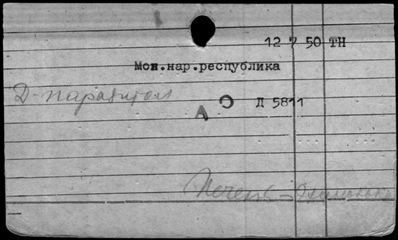 12 7 50 ТН
Мон.нар.республика
Д-паразитол
Л 5811
А
Печень -